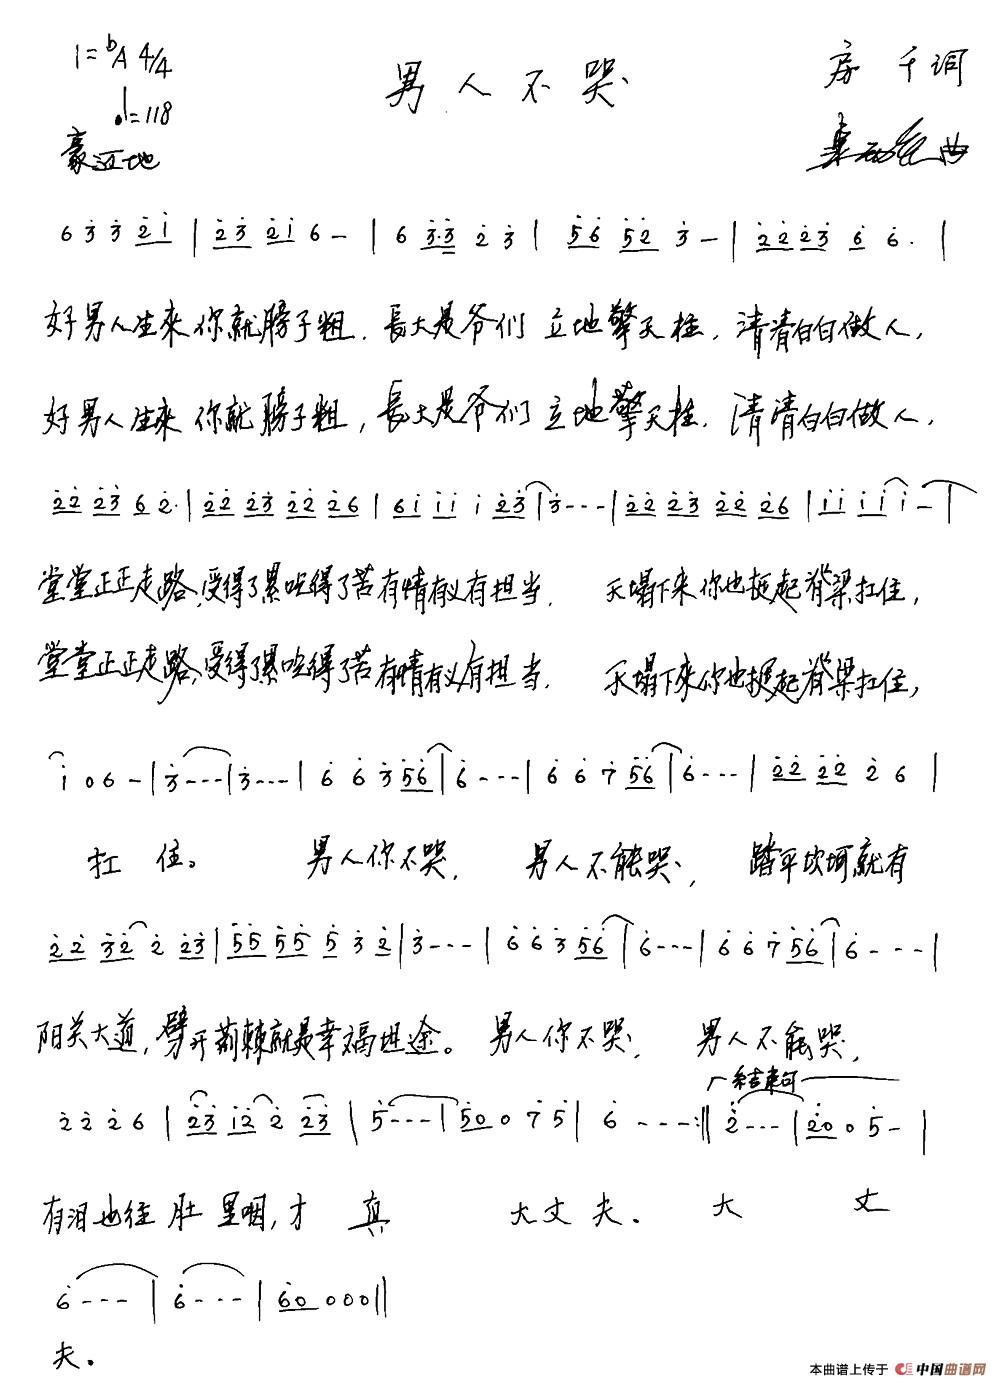 1=♭A 4/4
♩=118
豪迈地
男人不哭
房千词
曲
6 3̇ 3̇ 2̇1̇ | 2̇3̇ 2̇1̇ 6 – | 6 3̇·3̇ 2̇ 3̇ | 5̇6̇ 5̇2̇ 3̇ – | 2̇2̇2̇3̇ 6̇ 6̇· |
好男人生来你就膀子粗，長大是爷们立地擎天柱，清清白白做人，
好男人生来你就膀子粗，長大是爷们立地擎天柱，清清白白做人，
2̇2̇ 2̇3̇ 6 2̇· | 2̇2̇ 2̇3̇ 2̇2̇ 2̇6 | 61̇ 1̇1̇ 1̇ 2̇3̇ | 3̇ - - - | 2̇2̇ 2̇3̇ 2̇2̇ 2̇6 | 1̇1̇ 1̇1̇ 1̇ – |
堂堂正正走路，受得了累吃得了苦有情有义有担当， 天塌下来你也挺起脊梁扛住，
堂堂正正走路，受得了累吃得了苦有情有义有担当， 天塌下来你也挺起脊梁扛住，
1̇ 0 6 – | 3̇ - - - | 3̇ - - - | 6̇ 6̇ 3̇ 5̇6̇ | 6̇ - - - | 6̇ 6̇ 7̇ 5̇6̇ | 6̇ - - - | 2̇2̇ 2̇2̇ 2̇ 6 |
扛 住。 男人你不哭， 男人不能哭， 踏平坎坷就有
2̇2̇ 3̇2̇ 2̇ 2̇3̇ | 5̇5̇ 5̇5̇ 5̇ 3̇ 2̇ | 3̇ - - - | 6̇ 6̇ 3̇ 5̇6̇ | 6̇ - - - | 6̇ 6̇ 7̇ 5̇6̇ | 6̇ - - - |
阳关大道，劈开荆棘就是幸福坦途。 男人你不哭， 男人不能哭，
结束句
2̇ 2̇ 2̇ 6 | 2̇3̇ 1̇2̇ 2̇ 2̇3̇ | 5̇ - - - | 5̇0 0 7̇ 5̇ | 6̇ - - - :‖ 2̇ - - - | 2̇0 0 5̇ – |
有泪也往肚里咽，才 真 大丈夫． 大 丈
6̇ - - - | 6̇ - - - | 6̇0 000 ‖
夫．
本曲谱上传于 中国曲谱网